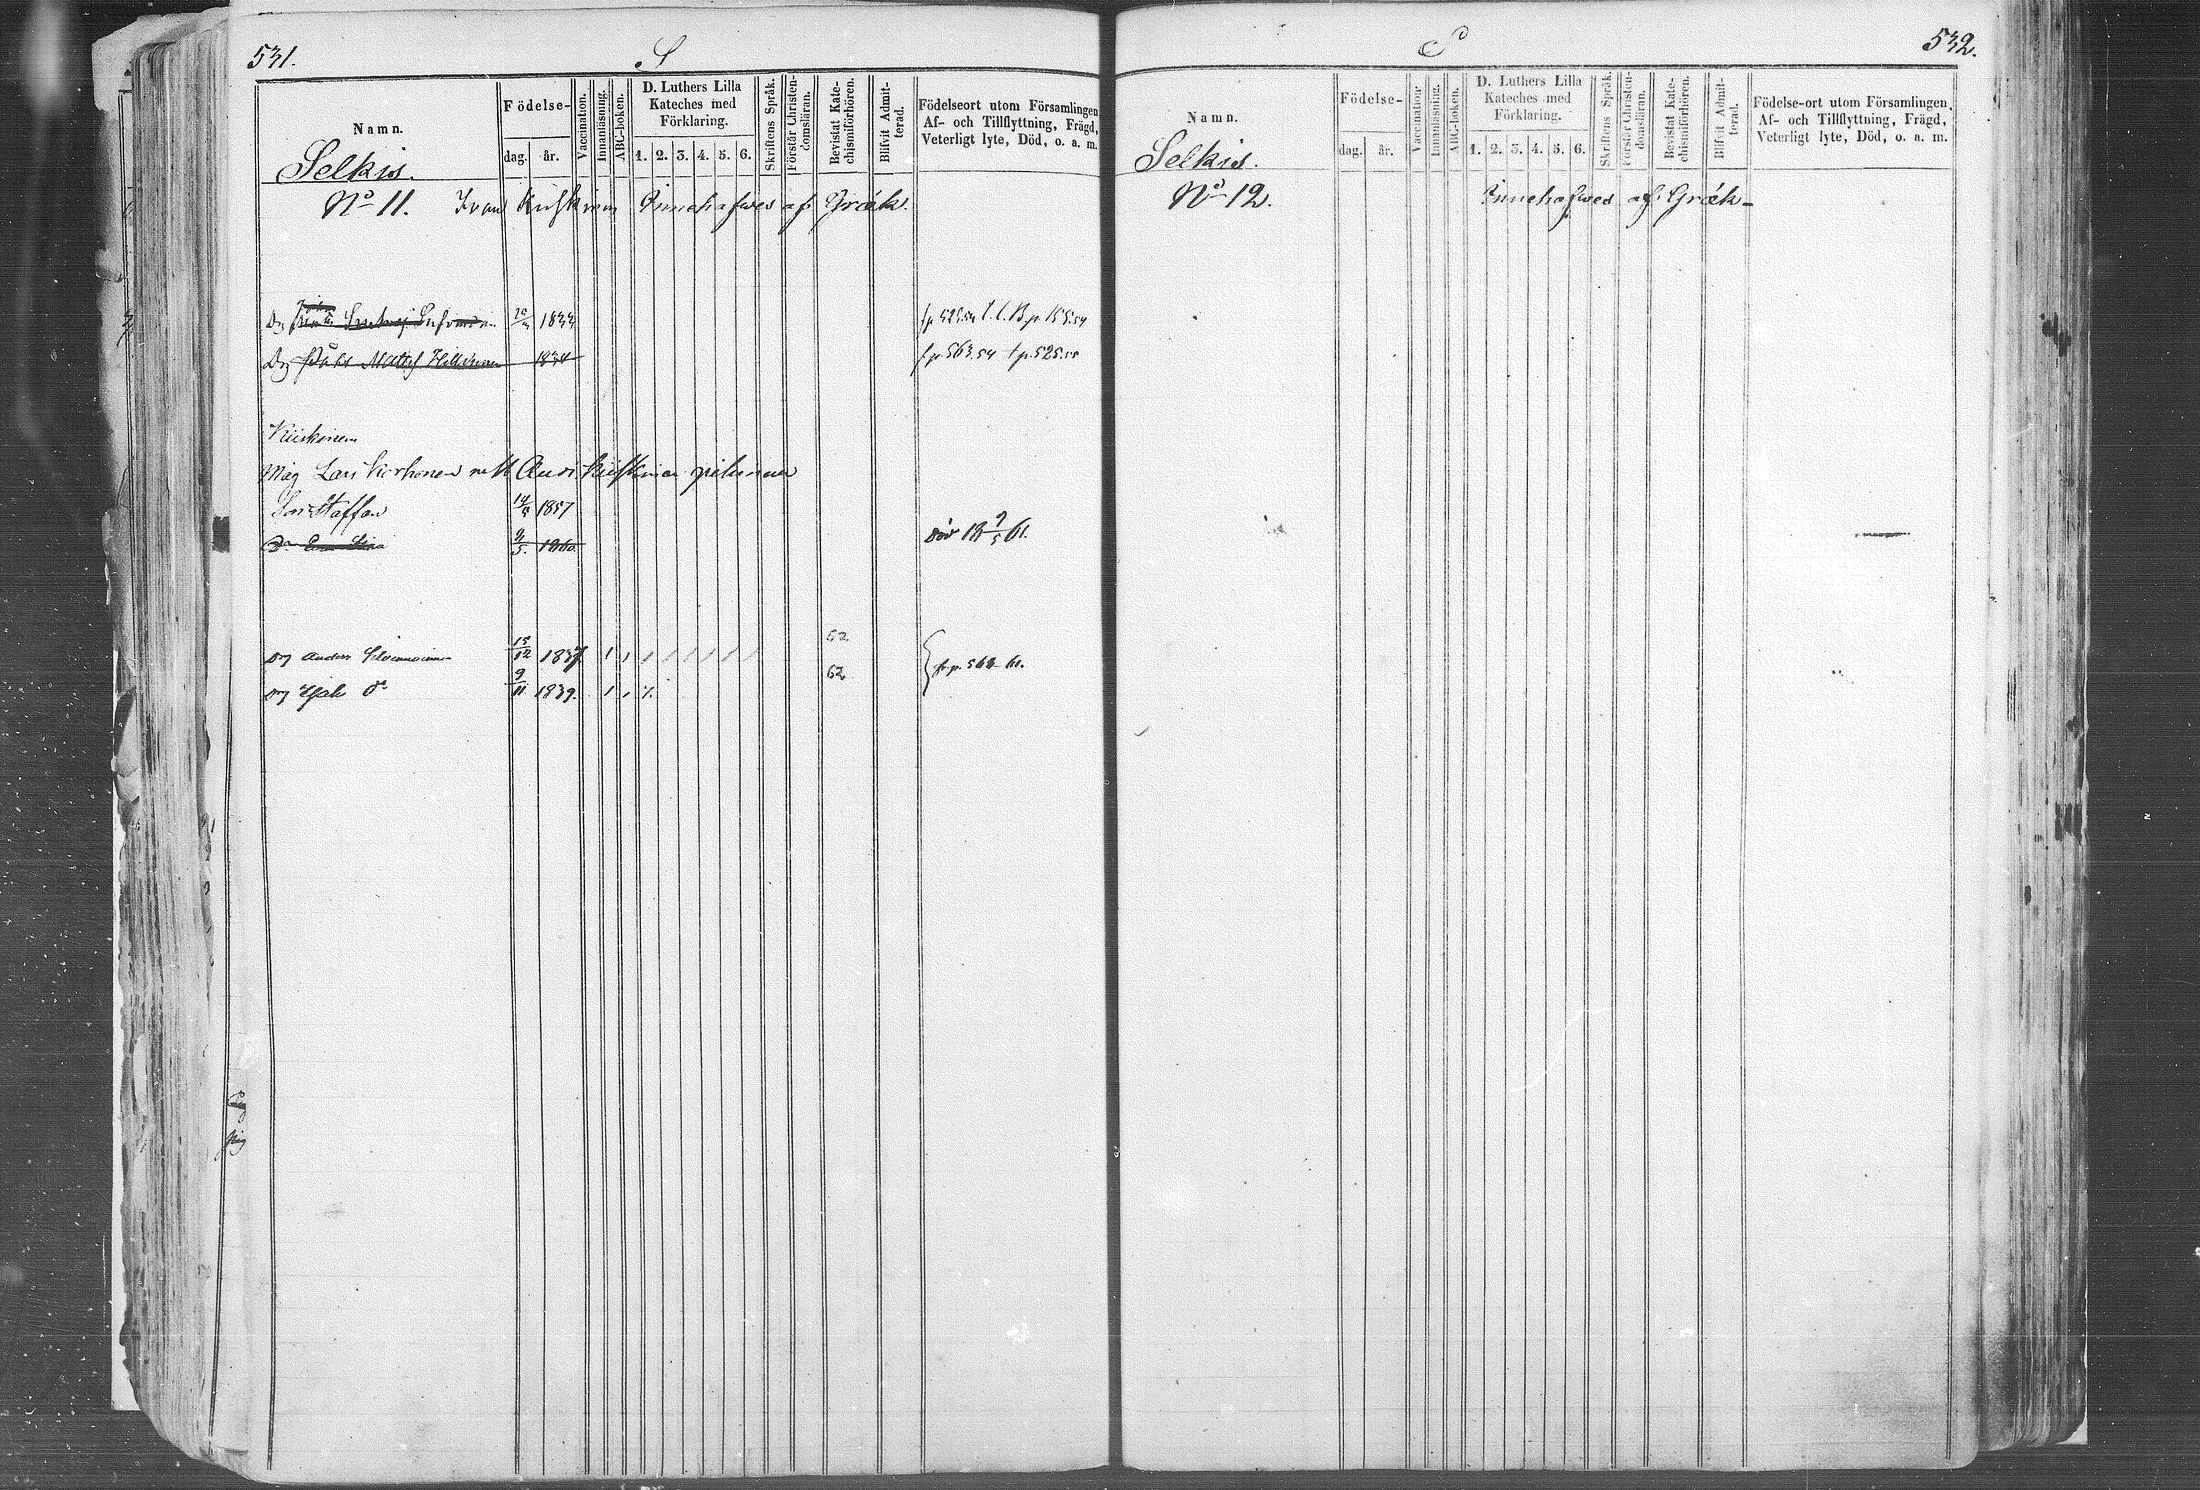 531.
S
Namn.
Födelse-
dag. år.
Vaccination.
Innanläsning.
ABC-boken.
D. Luthers Lilla
Kateches med
Förklaring.
1. 2. 3. 4. 5. 6.
Skriftens Språk.
Förstår Christen-
domsläran.
Bevistat Kate-
chismiförhören.
Blifvit Admit-
terad.
Födelseort utom Församlingen,
Af- och Tillflyttning, Frägd,
Veterligt lyte, Död, o. a. m.
Selkis.
No 11. Ivan Kiiskinen Innehafwes af Græk.
Dg 1833
Dg Påhl Matts 1834 f.p. 563.54 t.p. 525.55
Kiiskinen
Måg Lars Kiiskinen
Son Staffan 1857
9/5. 1860 Död 18 9/5 61.
52
Dg Anders 15/12 1837
62
Dg 9/11 1839. 1 1
532.
S
Namn.
Födelse-
dag. år.
Vaccination.
Innanläsning.
ABC-boken.
D. Luthers Lilla
Kateches med
Förklaring.
1. 2. 3. 4. 5. 6.
Skriftens Språk.
Förstår Christen-
domsläran.
Bevistat Kate-
chismiförhören.
Blifvit Admit-
terad.
Födelse-ort utom Församlingen,
Af- och Tillflyttning, Frägd,
Veterligt lyte, Död, o. a. m.
Selkis.
No 12. Innehafwes af Græk-